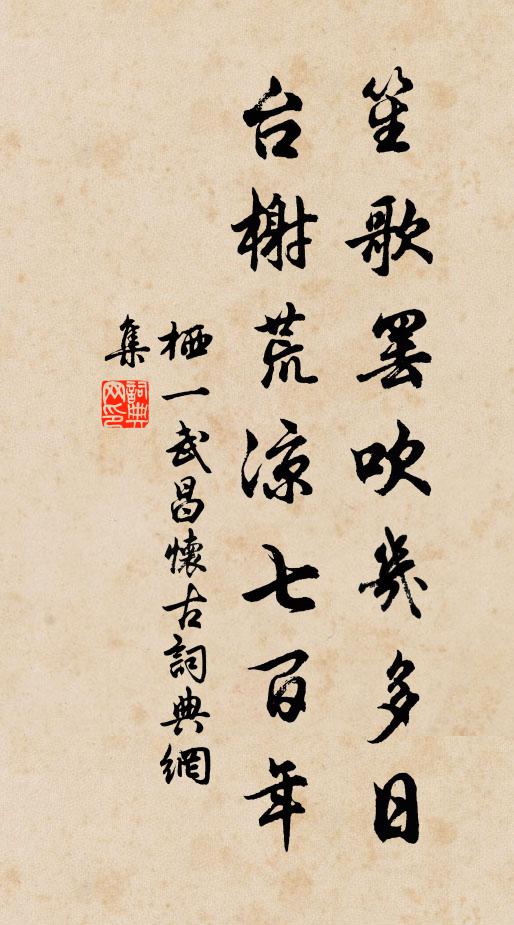 笙歌罢吹几多日
台榭荒凉七百年
栖一武昌懷古詞典網
集
詞典
网印